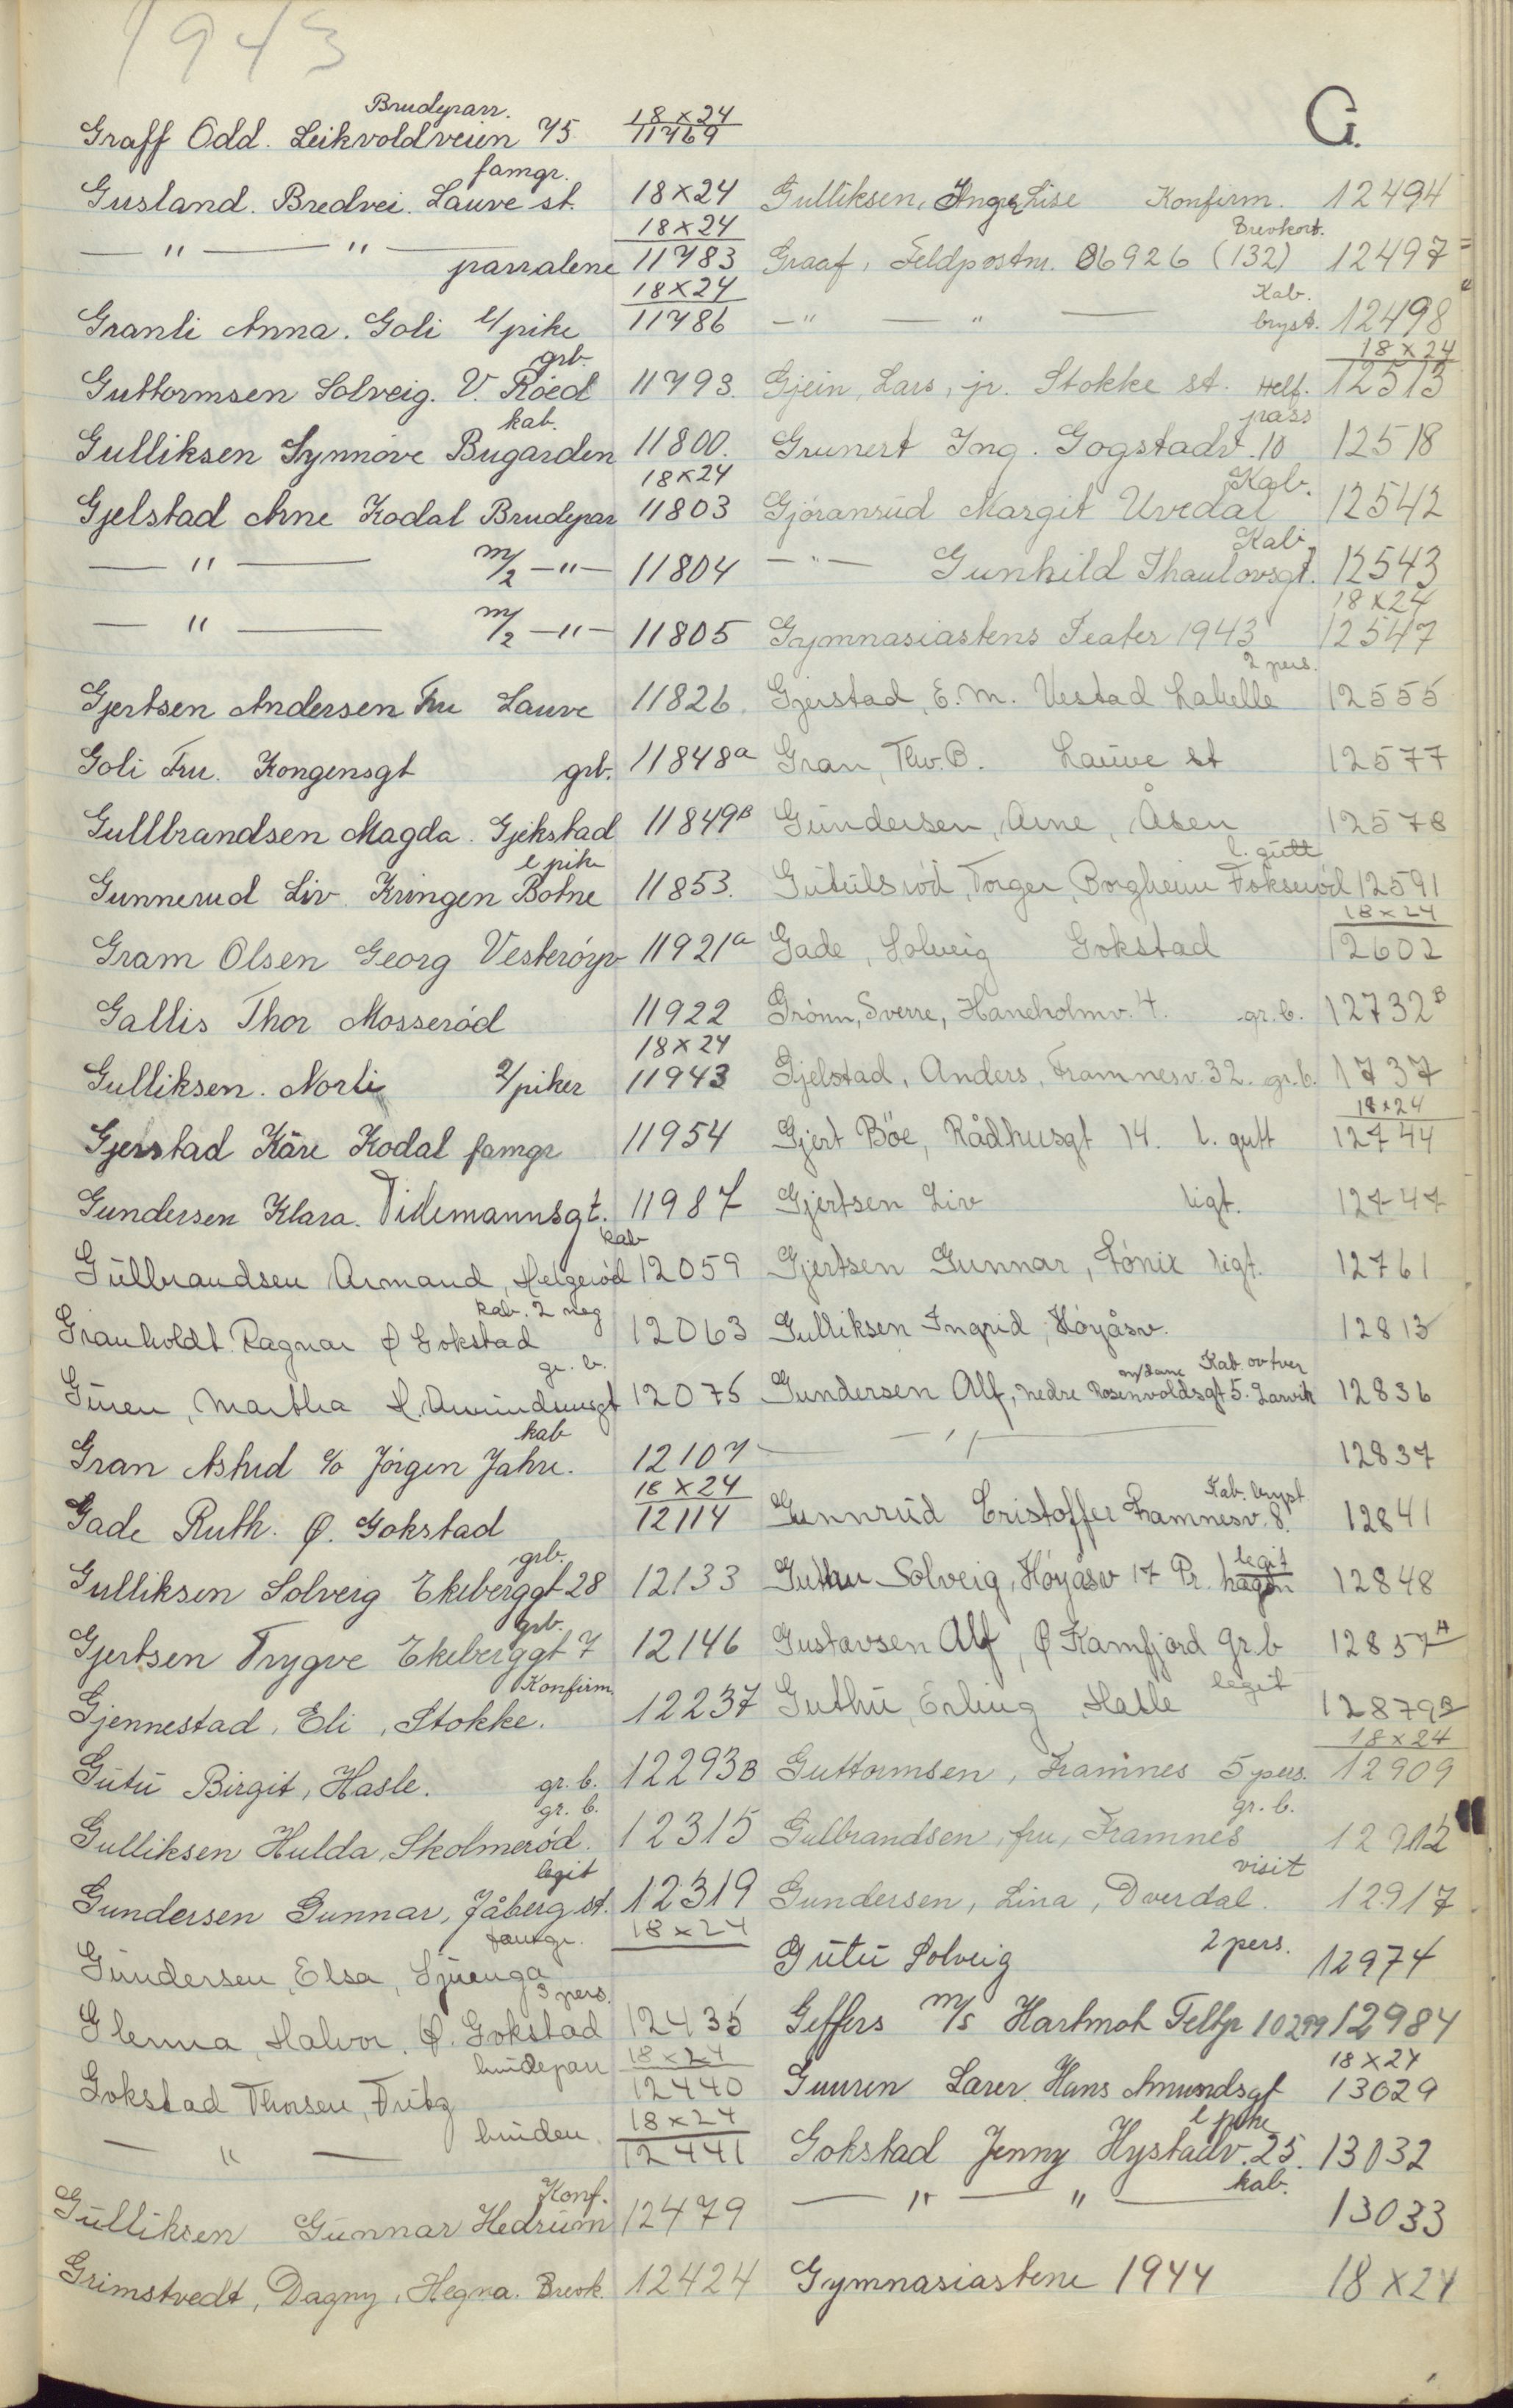 1943
G.
Brudeparr.
Graff Odd. Leikvoldveien 75 18x24 11769
famgr.
Gusland. Bredvei. Lauve st. 18x24
— " — " — parralene 18x24 11783
Granli Anna. Goli l/pike 18x24 11786
grb.
Guttormsen Solveig. V. Röed 11793.
kab.
Gulliksen Synnöve Bugarden 11800.
Gjelstad Arne Kodal Brudepar 18x24 11803
— " — m/2 — " — 11804
— " — m/2 — " — 11805
Gjertsen Andersen Fru Lauve 11826.
Goli Fru. Kongensgt grb. 11848a
Gullbrandsen Magda. Gjekstad 11849B
l pike
Gunnerud Liv. Kringen Botne 11853.
Gram Olsen Georg Vesteröyv 11921a
Gallis Thor Mosseröd 11922
Gulliksen. Norli 2/piker 18x24 11943
Gjerstad Kåre Kodal famgr 11954
Gundersen Klara. Tidemannsgt. 11987
kab
Gulbrandsen Armand, Helgeröd 12059
kab. 2 neg
Granholdt Ragnar Ø Gokstad 12063
gr. b.
Guren, Martha H. Amundsengt 12075
kab
Gran Astrid c/o Jörgen Jahre. 12107
Gade Ruth. Ø. Gokstad 18x24 12114
grb.
Gulliksen Solveig Ekeberggt 28 12133
grb.
Gjertsen Trygve Ekeberggt 7 12146
Konfirm.
Gjennestad, Eli, Stokke. 12237
Gutu Birgit, Hasle. gr. b. 12293B
gr. b.
Gulliksen Hulda, Skolmeröd. 12315
legit
Gundersen Gunnar, Jåberg st. 12319
famgr. 18x24
Gundersen, Elsa, Ljuenga
3 pers.
Glenna, Halvor. Ø. Gokstad 12435
brudeparr 18x24
Gokstad Thorsen, Fritz 12440
— " — bruden 18x24 12441
Konf.
Gulliksen Gunnar Hedrum 12479
Grimstvedt, Dagny, Hegna. Brevk. 12424
Gulliksen, Inger Lise Konfirm. 12494
Brevkort.
Graaf, Feldpostnr. 06926 (132) 12497
Kab.
— " — " — bryst. 12498
Gjein, Lars, jr. Stokke st. Helf. 18x24 12513
pass
Grunert Ing. Gogstadv. 10 12518
Kab.
Gjöranrud Margit Uvedal 12542
Kab.
— " — Gunhild Thaulowsgt. 12543
Gymnasiastens Teater 1943 18x24 12547
2 pers.
Gjerstad, E. M. Vestad Labelle 12555
Gran, Thv. B. Lauve st 12577
Gundersen, Arne, Åsen 12578
l. gutt
Gutulsröd, Torger, Borgheim Fokseröd 12591
Gade, Solveig Gokstad 18x24 12602
Grönn, Sverre, Haneholmv. 4. gr. b. 12732B
Gjelstad, Anders, Framnesv. 32. gr. b. 1737
Gjert Böe, Rådhusgt 14. l. gutt 18x24 12744
Gjertsen Liv ligt. 12747
Gjertsen Gunnar, Fönix ligt. 12761
Gulliksen Ingrid, Höyåsv. 12813
m/dame Kab. ov tver
Gundersen Alf, nedre Rosenvoldsgt 5. Larvik 12836
— " — 12837
Kab. bryst
Gunnrud Cristoffer Framnesv. 8. 12841
legit
Guthu Solveig, Höyåsv 17 Pr. hagen 12848
Gustavsen Alf, Ø Kamfjord gr. b 12857A
legit
Guthu, Erling Hasle 12879B
Guttormsen, Framnes 5 pers. 18x24 12909
gr. b.
Gulbrandsen, fru, Framnes 12912
visit
Gundersen, Lina, Dverdal. 12917
Gutu Solveig 2 pers. 12974
Geffers m/s Hartmot Feltp 10299 12984
Guuren Larer Hans Amundsgt 18x24 13029
l pike
Gokstad Jenny Hystadv. 25. 13032
kab.
— " — " — 13033
Gymnasiastene 1944 18x24